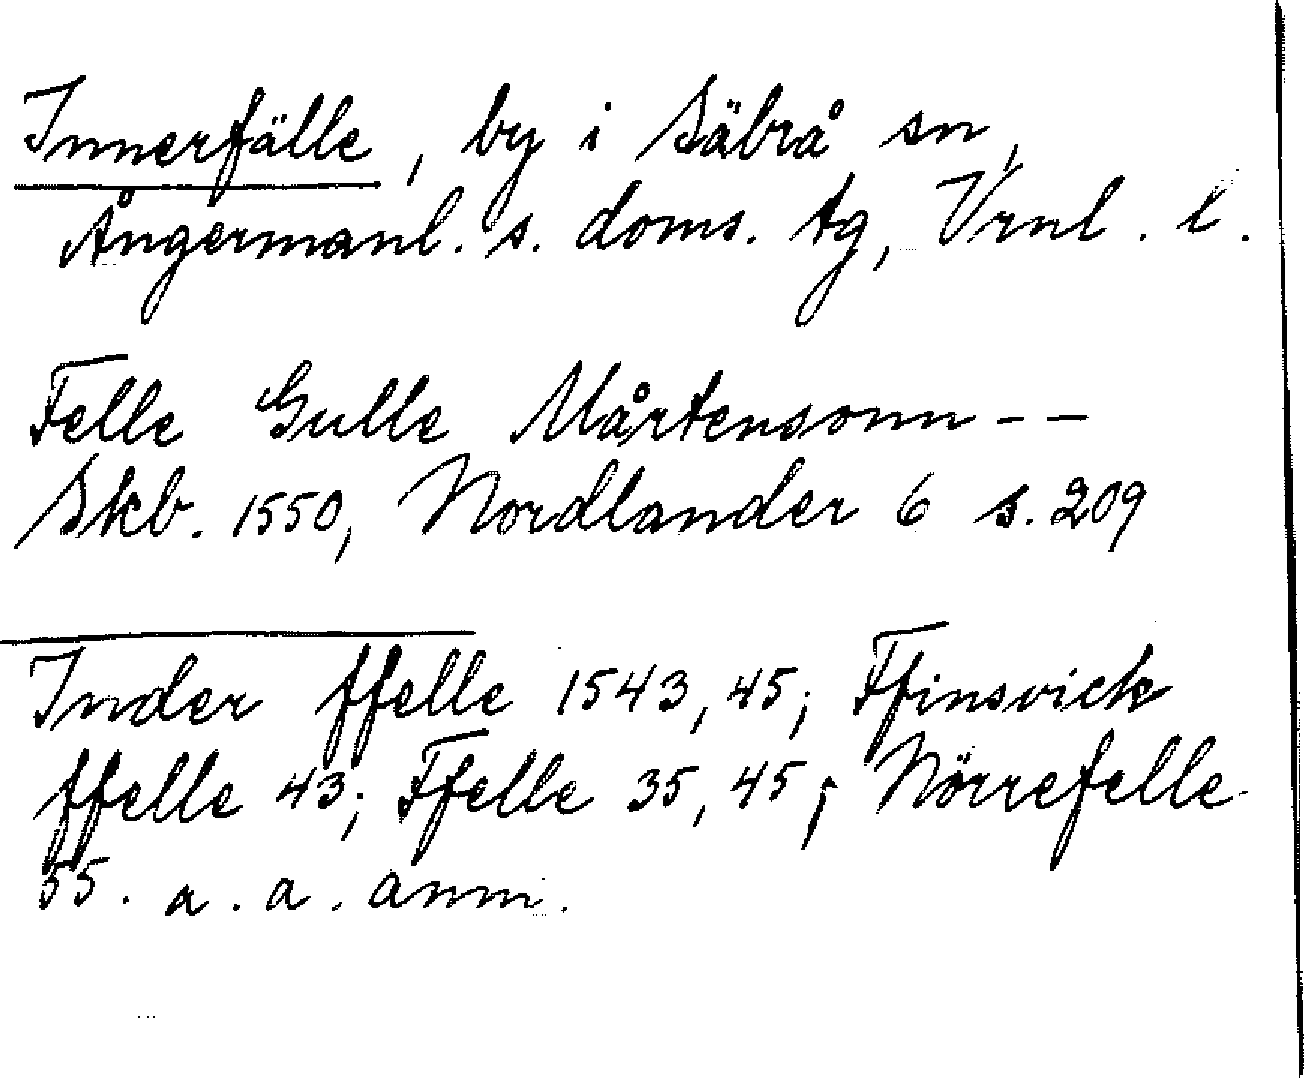 Innerfälle, by i Säbrå sn,
Ångermanl. s. doms. tg, Vrnl. l.
Felle Gulle Mårtensonn - -
Skb. 1550, Nordlander 6 s. 209
Inder ffelle 1543, 45; Ffinsvick
ffelle 43; Ffelle 35, 45; Nörrefelle
55. a. a. anm.